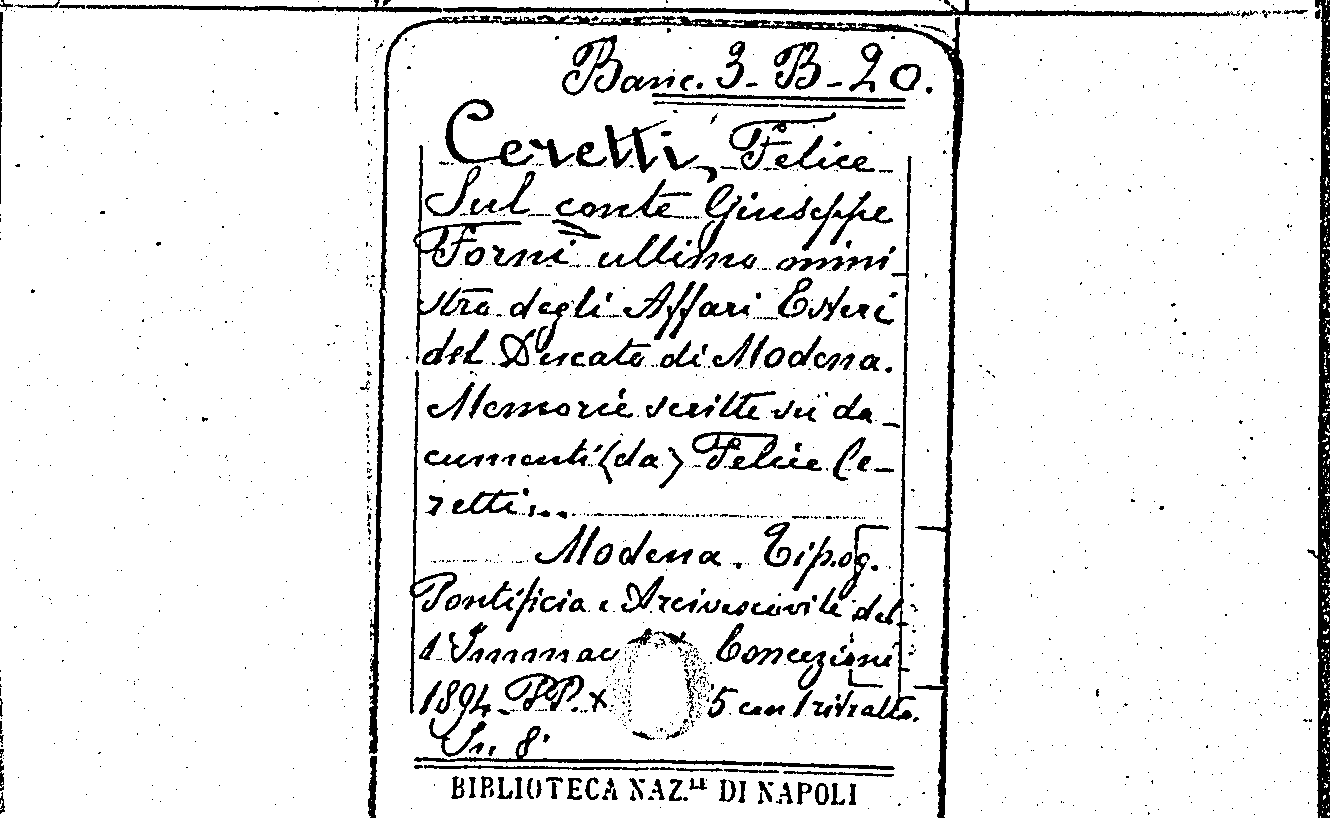 Banc. 3-B-20.
Ceretti, Felice
Sul conte Giuseppe
Forni ultimo mini-
stro degli Affari Esteri
del Ducato di Modena.
Memorie scritte su do-
cumenti (da) Felice Ce-
retti...
Modena. Tipog.
Pontificia e Arcivescovile del-
l'Immac Concezione
1894. PP. x 5 con 1 ritratto.
In 8°
BIBLIOTECA NAZ.LE DI NAPOLI